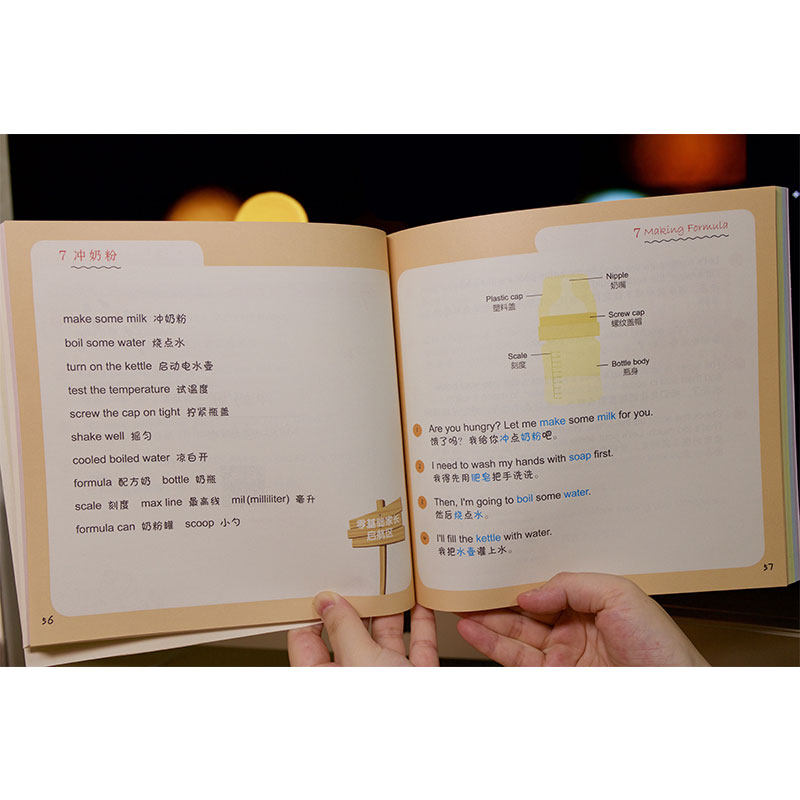 7 冲奶粉
make some milk 冲奶粉
boil some water 烧点水
turn on the kettle 启动电水壶
test the temperature 试温度
screw the cap on tight 拧紧瓶盖
shake well 摇匀
cooled boiled water 凉白开
formula 配方奶 bottle 奶瓶
scale 刻度 max line 最高线 mil(milliliter) 毫升
formula can 奶粉罐 scoop 小勺
零基础家长
启航区
36
7 Making Formula
Nipple
奶嘴
Plastic cap
塑料盖
Screw cap
螺纹盖帽
Scale
刻度
Bottle body
瓶身
1 Are you hungry? Let me make some milk for you.
饿了吗？我给你冲点奶粉吧。
2 I need to wash my hands with soap first.
我得先用肥皂把手洗洗。
3 Then, I'm going to boil some water.
然后烧点水。
4 I'll fill the kettle with water.
我把水壶灌上水。
37